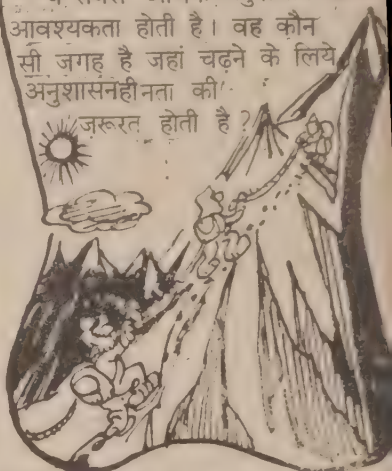 आवश्यकता होती है। वह कौन
सी जगह है जहां चढ़ने के लिये
अनुशासनहीनता की
जरूरत होती है ?